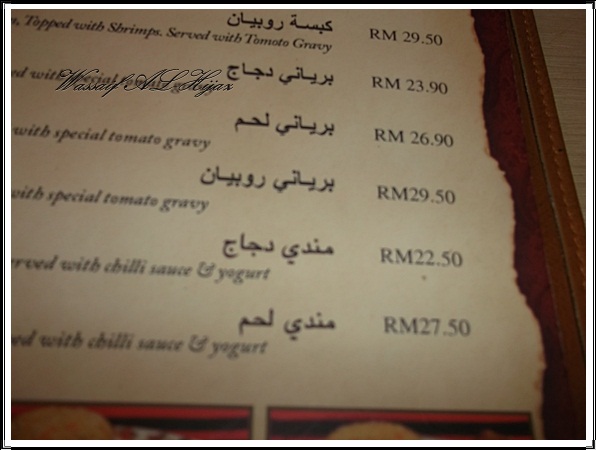 كبسة روبيان
Topped with Shrimps. Served with Tomoto Gravy RM 29.50
برياني دجاج
with special tomato gravy RM 23.90
Wassaif AL Hijaz
برياني لحم
with special tomato gravy RM 26.90
برياني روبيان
with special tomato gravy RM29.50
مندي دجاج
with chilli sauce & yogurt RM22.50
مندي لحم
with chilli sauce & yogurt RM27.50